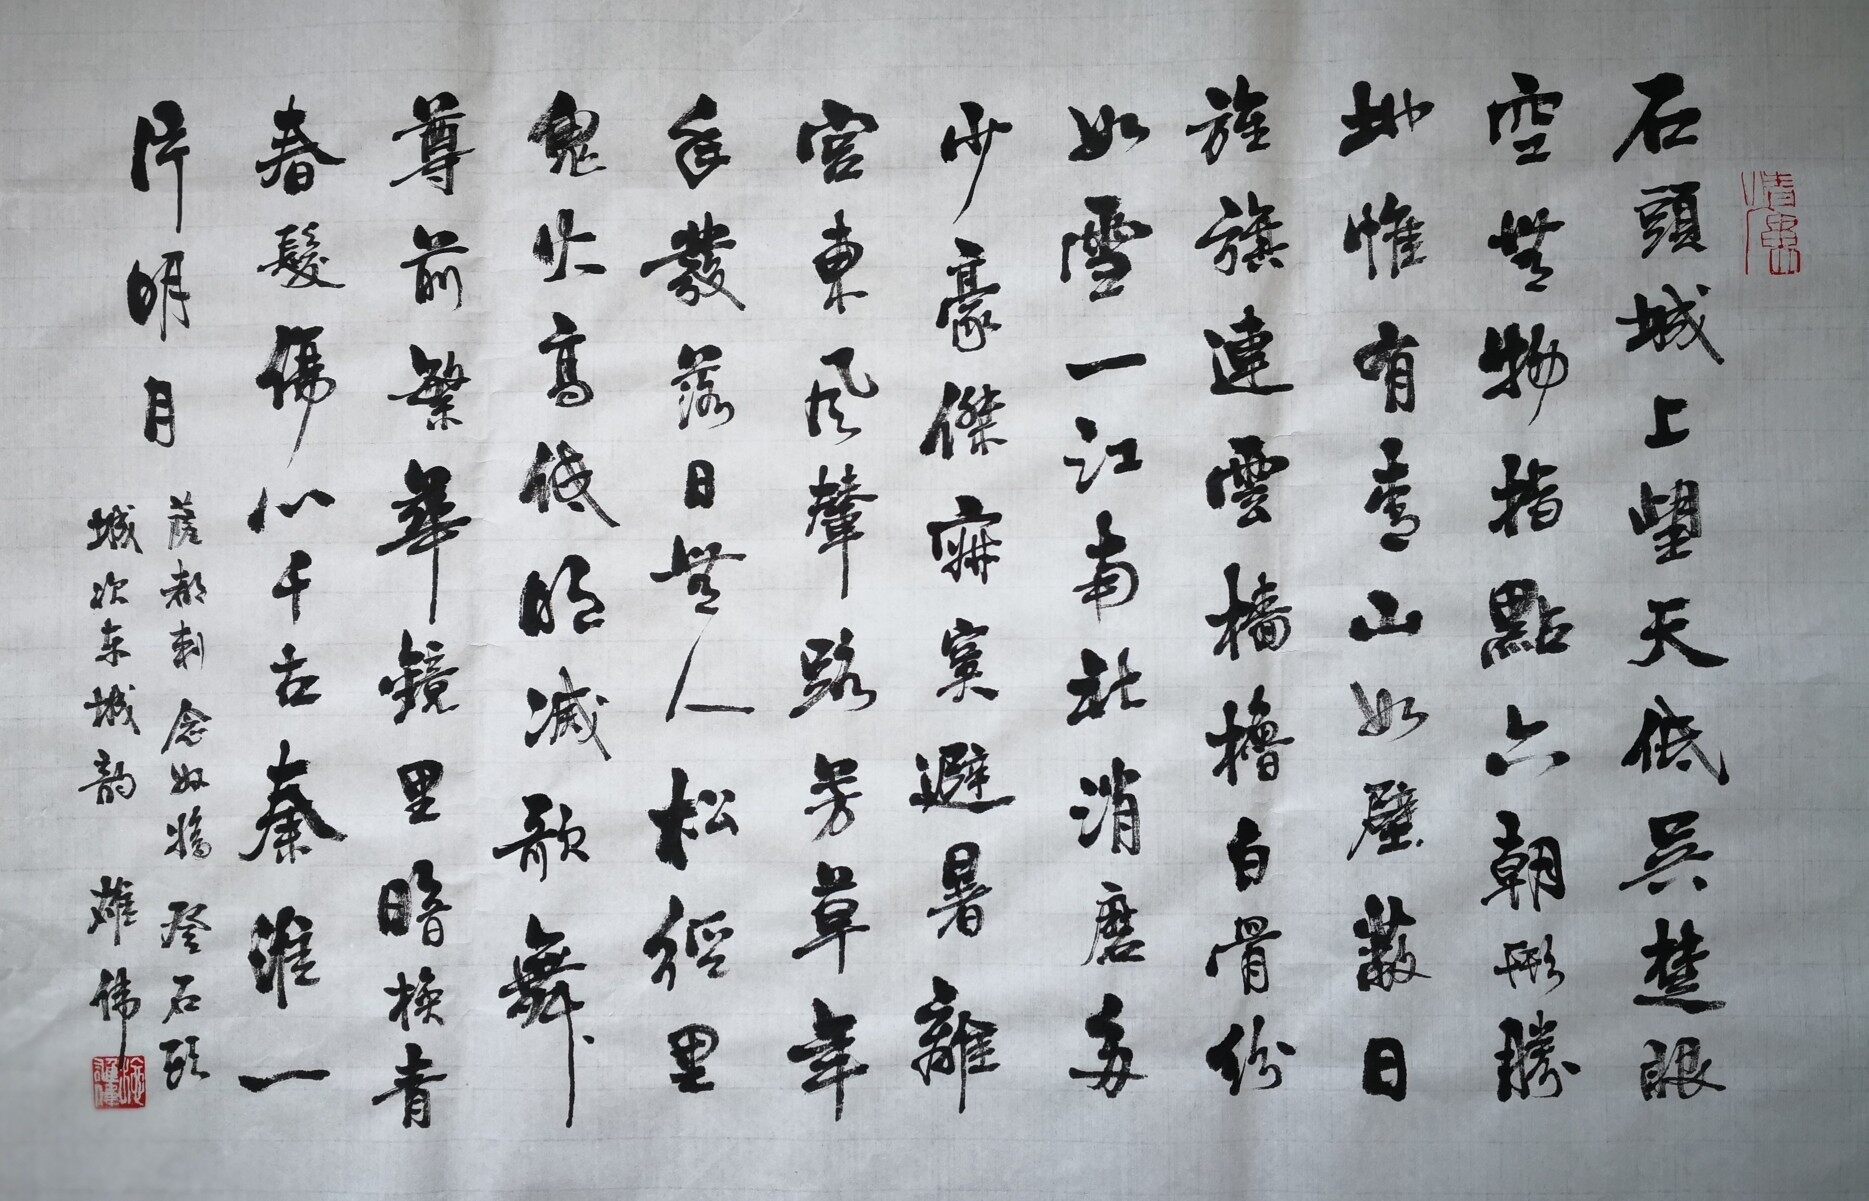 石頭城上望天低吳楚眼
空無物指點六朝形勝
地惟有青山如壁蔽日
旌旗連雲檣櫓白骨紛
如雪一江南北消磨多
少豪傑寂寞避暑離
宮東風輦路芳草年
年發落日無人松徑里
鬼火高低明滅歌舞
尊前繁華鏡里暗換青
春髮傷心千古秦淮一
片明月
薩都剌 念奴嬌 登石頭
城次东城韵 雄伟